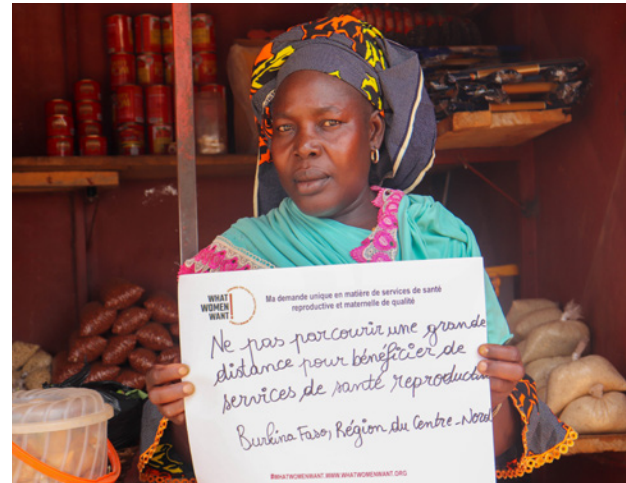 WHAT
WOMEN
WANT!
Ma demande unique en matière de services de santé
reproductive et maternelle de qualité
Ne pas parcourir une grande
distance pour bénéficier de
services de santé reproductive
Burkina Faso, Région du Centre-Nord
#WHATWOMENWANT. WWW.WHATWOMENWANT.ORG